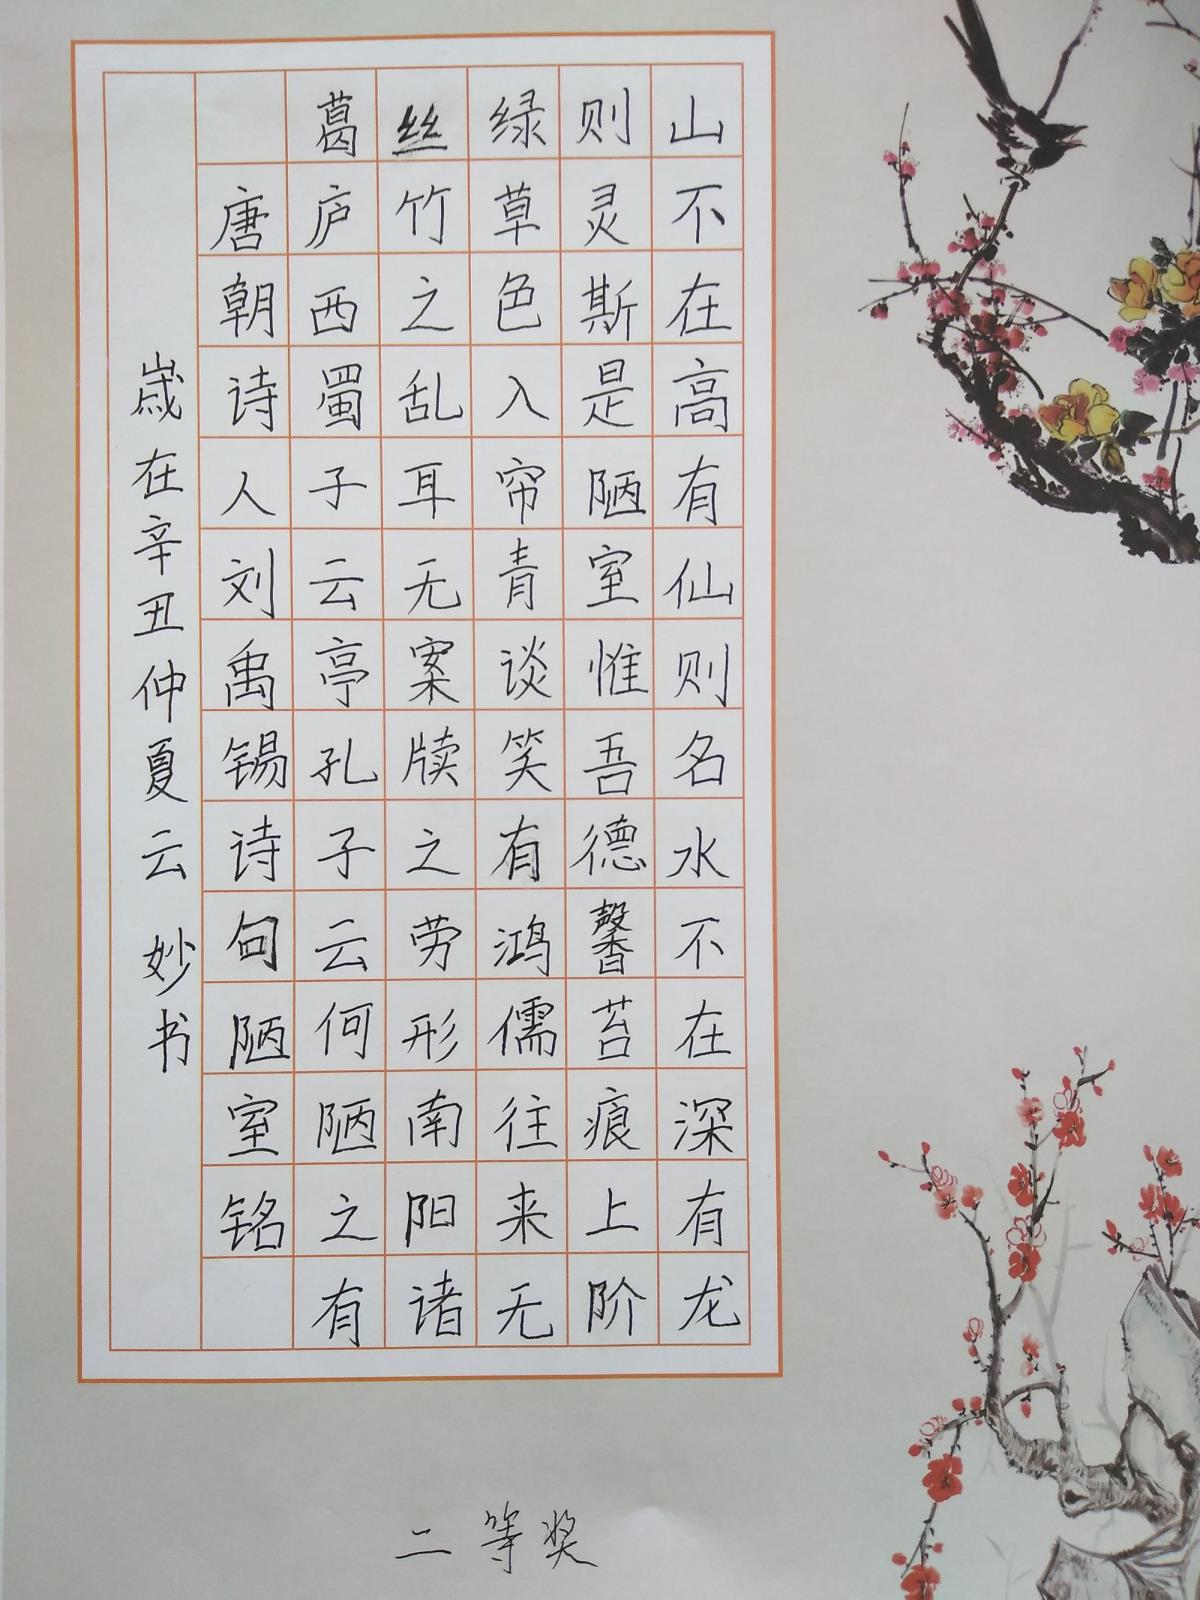 山不在高有仙则名水不在深有龙
则灵斯是陋室惟吾德馨苔痕上阶
绿草色入帘青谈笑有鸿儒往来无
丝竹之乱耳无案牍之劳形南阳诸
葛庐西蜀子云亭孔子云何陋之有
唐朝诗人刘禹锡诗句陋室铭
岁在辛丑仲夏云 妙书
二等奖